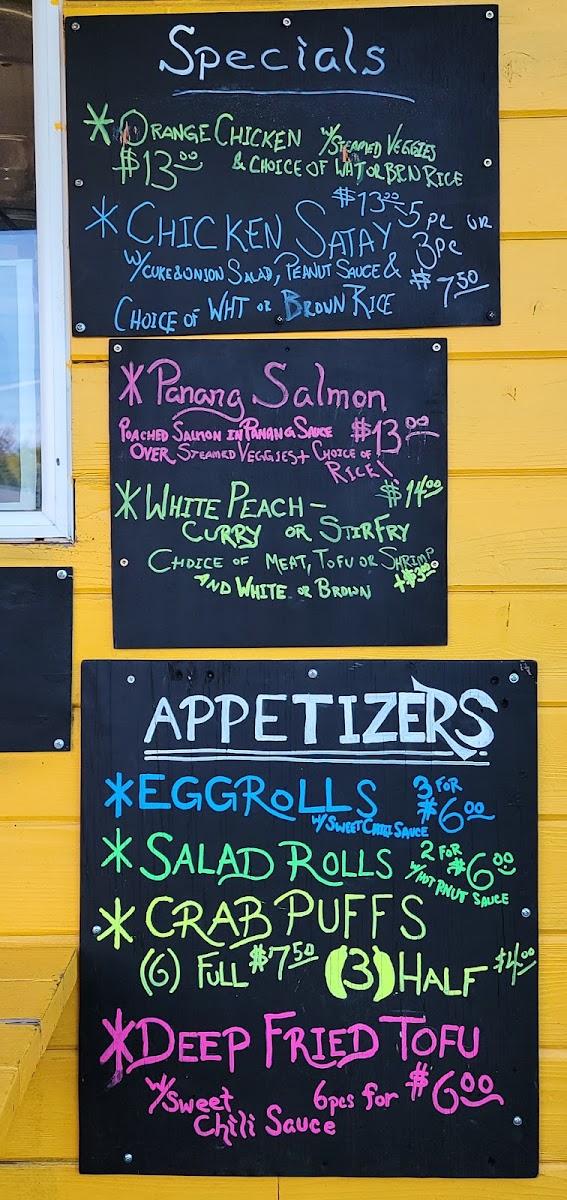 Specials
* ORANGE CHICKEN W/STEAMED VEGGIES
$13.00 & CHOICE OF WHT OR BRN RICE
* CHICKEN SATAY $13.00 5 pc OR
3pc
W/CUKE & ONION SALAD, PEANUT SAUCE & $7.50
CHOICE OF WHT OR BROWN RICE
* Panang Salmon
POACHED SALMON IN PANANG SAUCE $13.00
OVER STEAMED VEGGIES + CHOICE OF
RICE!
* WHITE PEACH - $14.00
CURRY OR STIR FRY
CHOICE OF MEAT, TOFU OR SHRIMP
AND WHITE OR BROWN +$3.00
APPETIZERS
* EGGROLLS 3 FOR
W/SWEET CHILI SAUCE $6.00
* SALAD ROLLS 2 FOR $6.00
W/HOT PNUT SAUCE
* CRAB PUFFS
(6) FULL $7.50 (3) HALF $4.00
* DEEP FRIED TOFU
W/Sweet 6pcs for $6.00
Chili Sauce